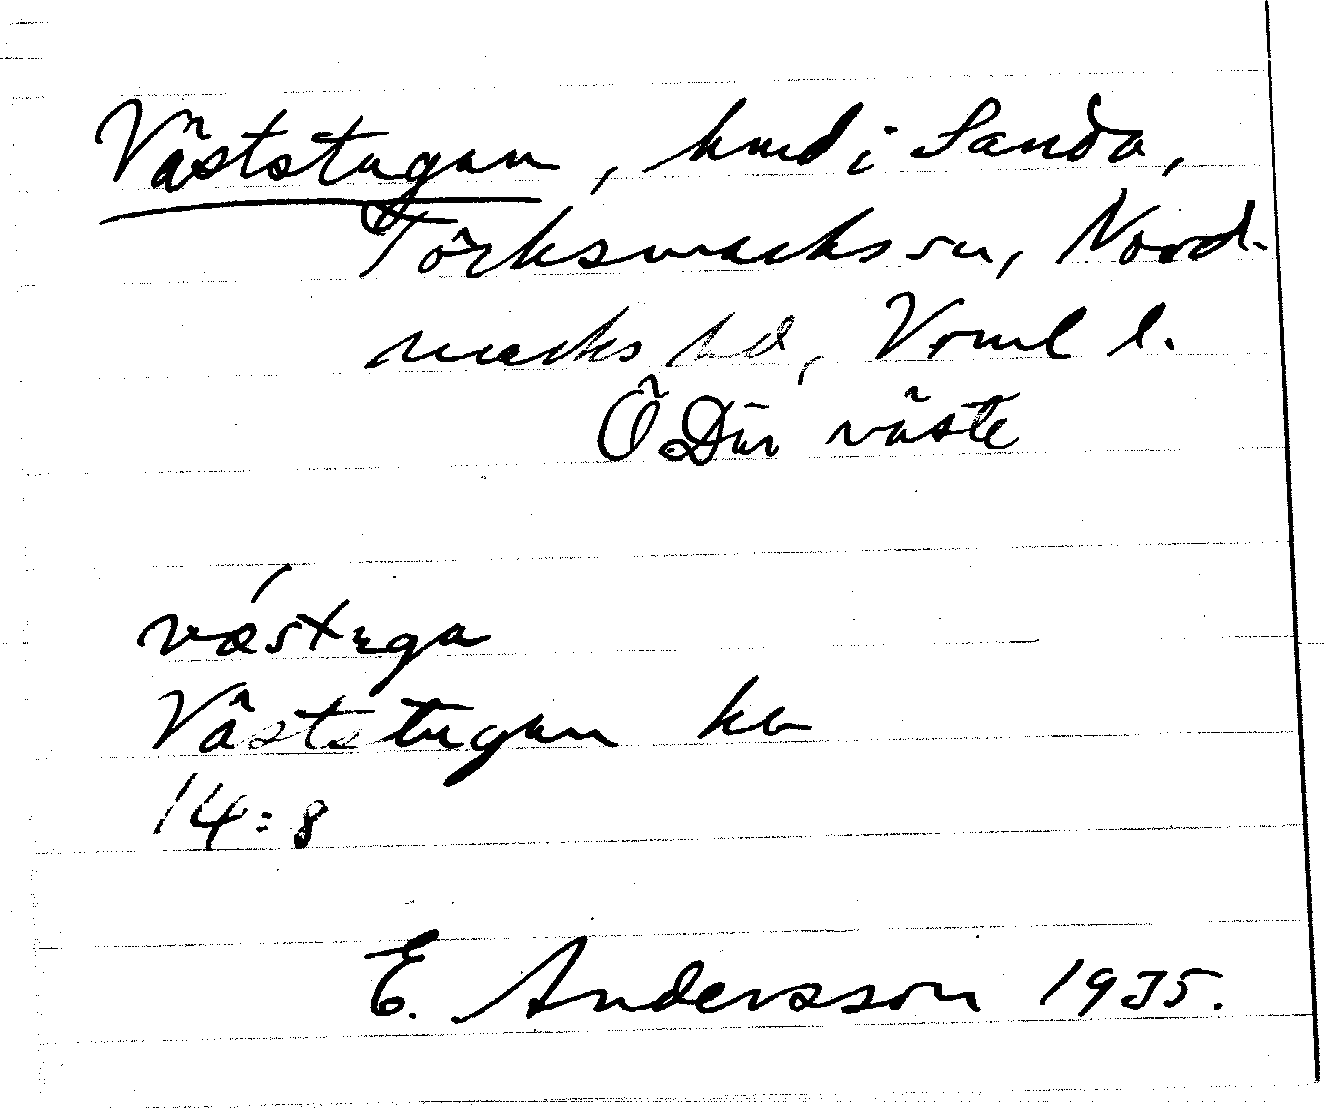 Väststugan, hmd i Sanda,
Töcksmarks sn, Nord-
marks hd, Vrml l.
ÖDin väste
væ´stega
Väststugan ka
14:8
E. Andersson 1935.